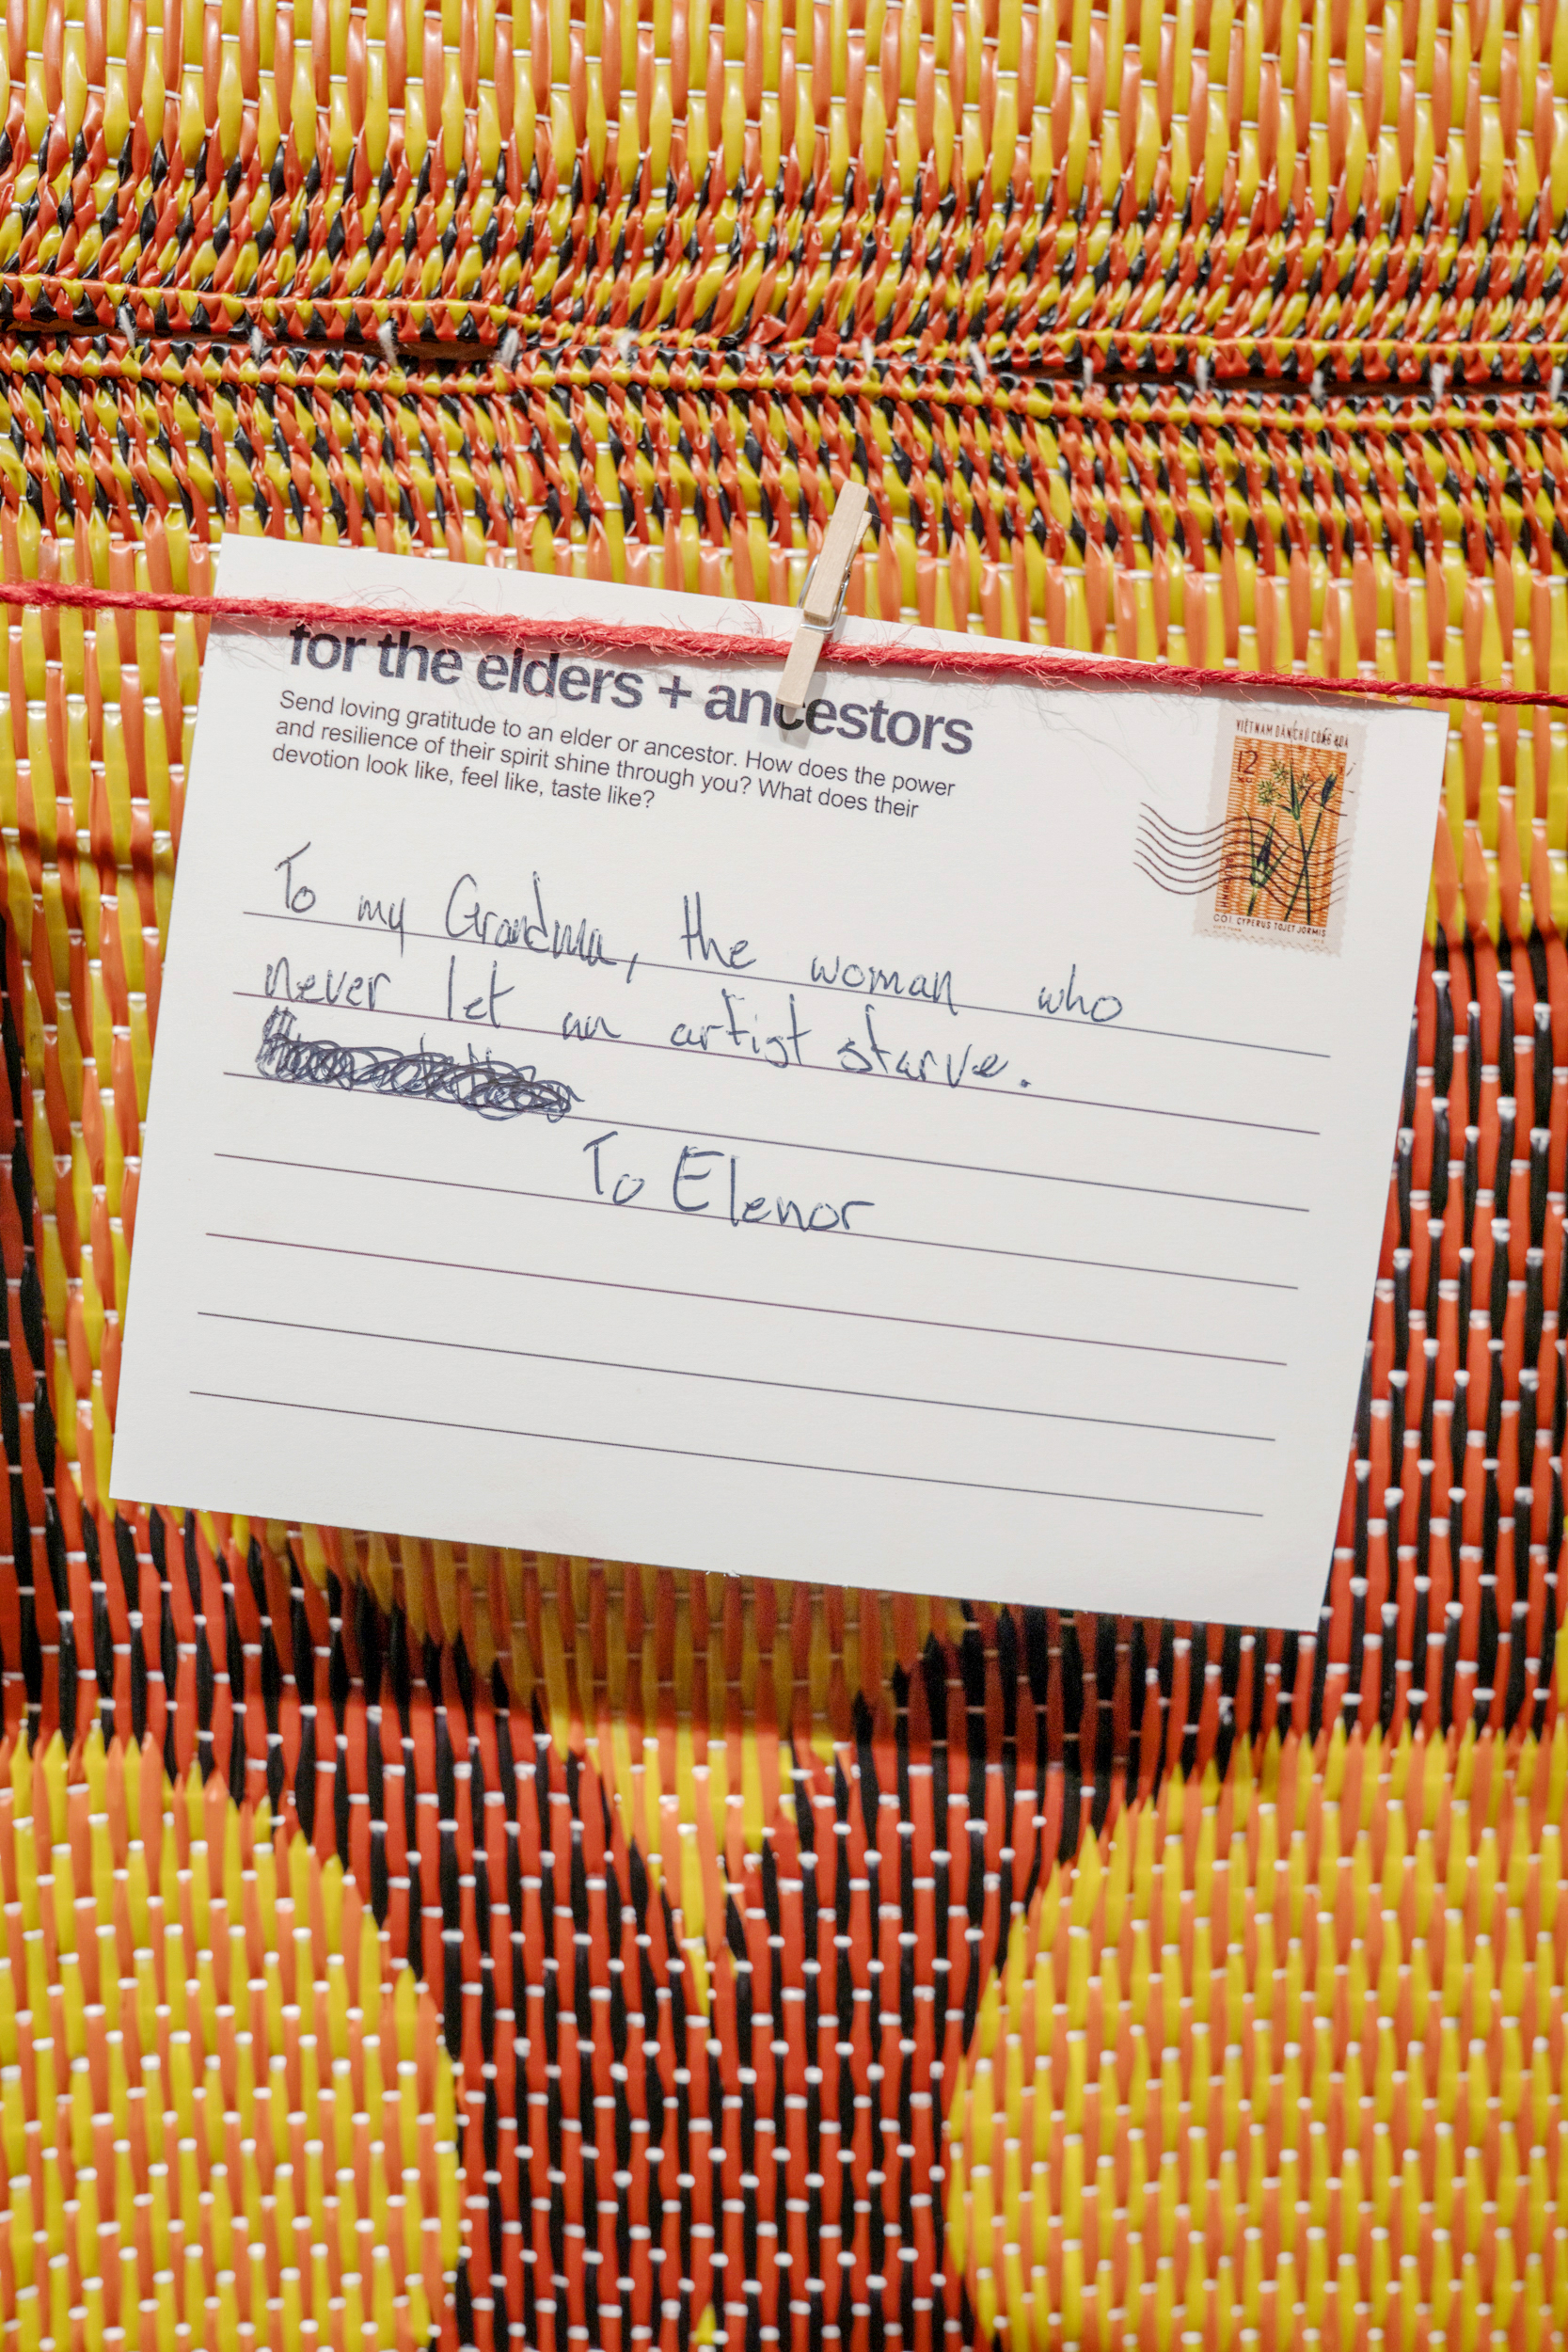 for the elders + ancestors
Send loving gratitude to an elder or ancestor. How does the power
and resilience of their spirit shine through you? What does their
devotion look like, feel like, taste like?
VIỆT NAM DÂN CHỦ CỘNG HÒA
12
CÓI CYPERUS TOJET JORMIS
To my Grandma, the woman who
never let an artist starve.
To Elenor